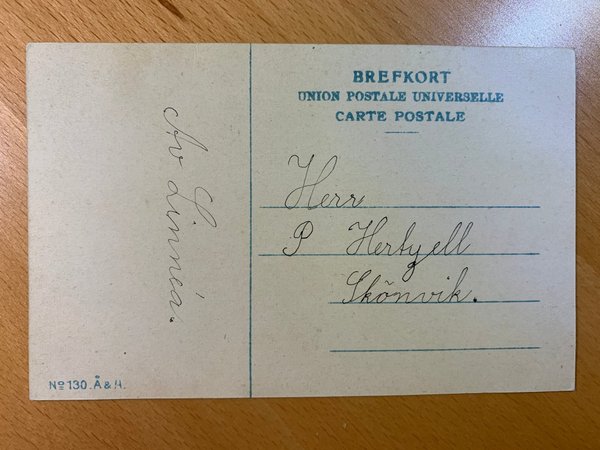 BREFKORT
UNION POSTALE UNIVERSELLE
CARTE POSTALE
Herr
P Hertzell
Skönvik.
Av Linnéa.
No 130. Å & H.